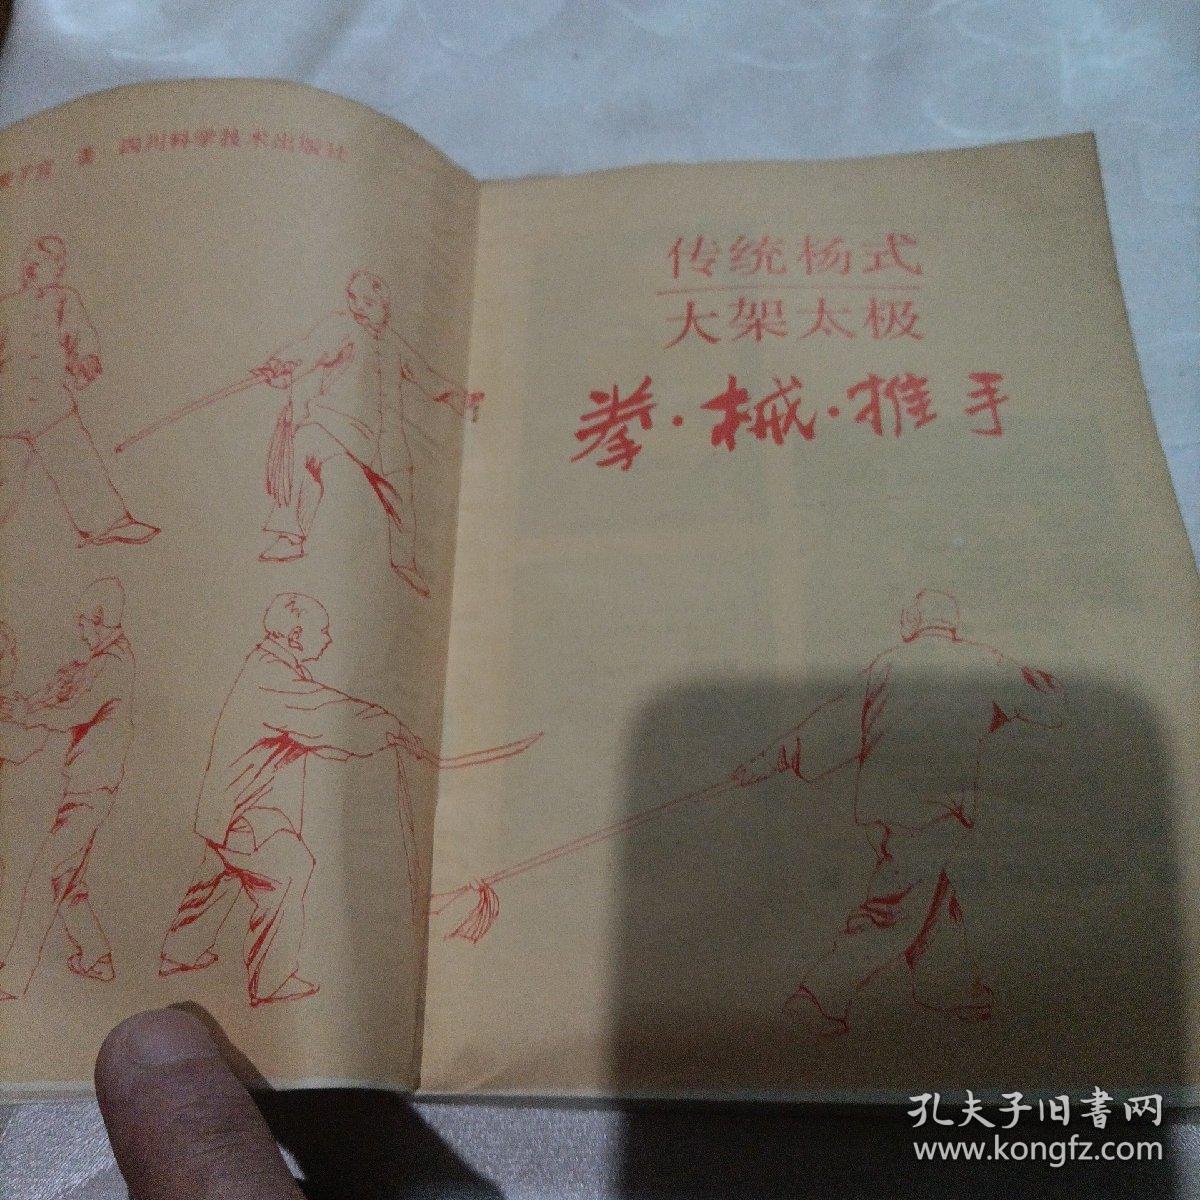 著 四川科学技术出版社
传统杨式
大架太极
拳·械·推手
孔夫子旧書网
www.kongfz.com